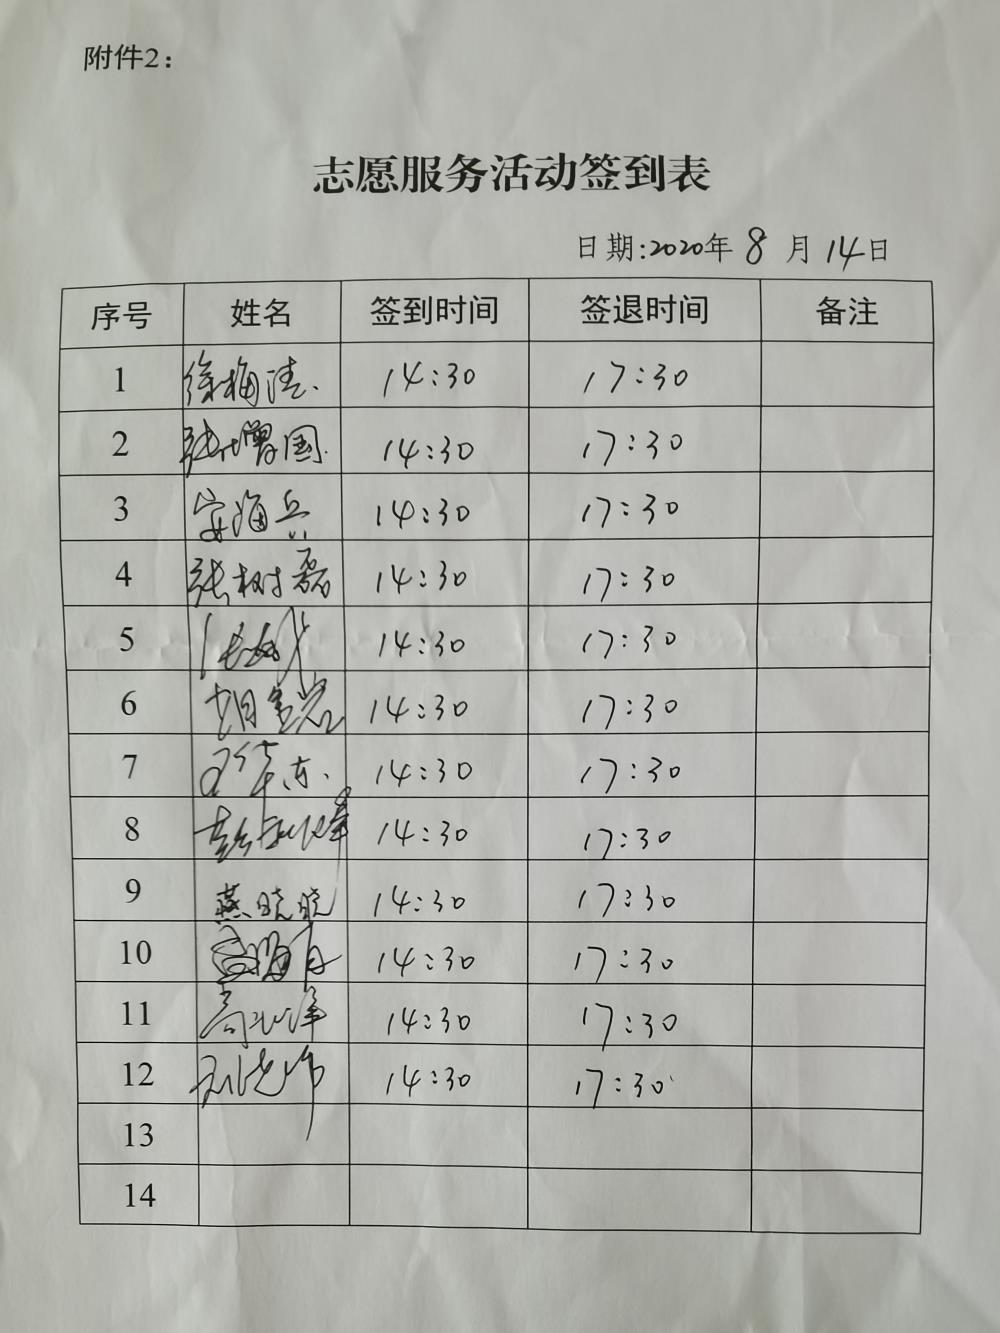 附件2：
志愿服务活动签到表
日期:2020年 8 月 14日
序号 姓名 签到时间 签退时间 备注
1 徐梅清 14:30 17:30
2 张增国 14:30 17:30
3 安海兵 14:30 17:30
4 张树磊 14:30 17:30
5 14:30 17:30
6 14:30 17:30
7 14:30 17:30
8 14:30 17:30
9 燕晓晓 14:30 17:30
10 14:30 17:30
11 14:30 17:30
12 14:30 17:30
13
14